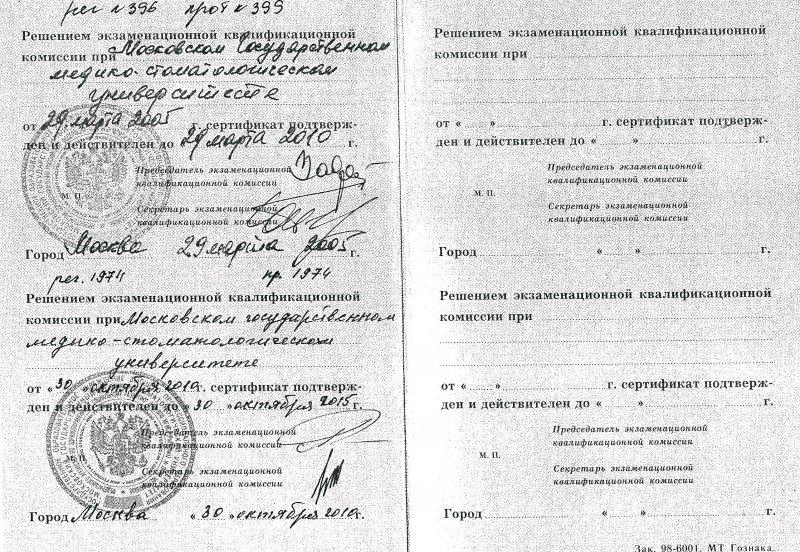 рег № 396 прот № 399
Решением экзаменационной квалификационной
комиссии при Московском Государственном
медико-стоматологическом
университете
от « 29 » марта 2005 г. сертификат подтверж-
ден и действителен до « 29 марта 2010 г.
Председатель экзаменационной
квалификационной комиссии
М. П.
Секретарь экзаменационной
квалификационной комиссии
Город Москва 29 марта 2005 г.
рег. 1974 пр. 1974
Решением экзаменационной квалификационной
комиссии при Московском государственном
медико-стоматологическом
университете
от « 30 » октября 2010 г. сертификат подтверж-
ден и действителен до « 30 » октября 2015 г.
Председатель экзаменационной
квалификационной комиссии
М. П.
Секретарь экзаменационной
квалификационной комиссии
Город Москва « 30 » октября 2010
Решением экзаменационной квалификационной
комиссии при
от « » г. сертификат подтверж-
ден и действителен до « » г.
Председатель экзаменационной
квалификационной комиссии
М. П.
Секретарь экзаменационной
квалификационной комиссии
Город « » г.
Решением экзаменационной квалификационной
комиссии при
от « » г. сертификат подтверж-
ден и действителен до « » г.
Председатель экзаменационной
квалификационной комиссии
М. П.
Секретарь экзаменационной
квалификационной комиссии
Город « » г.
Зак. 98-6001. МТ Гознака.